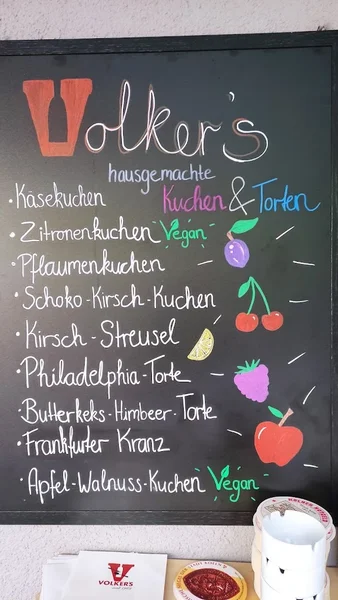 Volker's
hausgemachte
Kuchen & Torten
• Käsekuchen
• Zitronenkuchen Vegan
• Pflaumenkuchen
• Schoko-Kirsch-Kuchen
• Kirsch-Streusel
• Philadelphia-Torte
• Butterkeks-Himbeer-Torte
• Frankfurter Kranz
• Apfel-Walnuss-Kuchen Vegan
VOLKERS